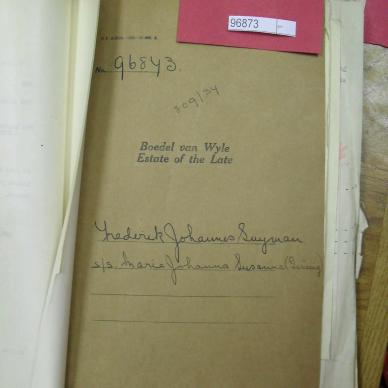 96873
No. 96873.
309/34
Boedel van Wyle
Estate of the Late
Frederick Johannes Snyman
s/s. Maria Johanna Susanna